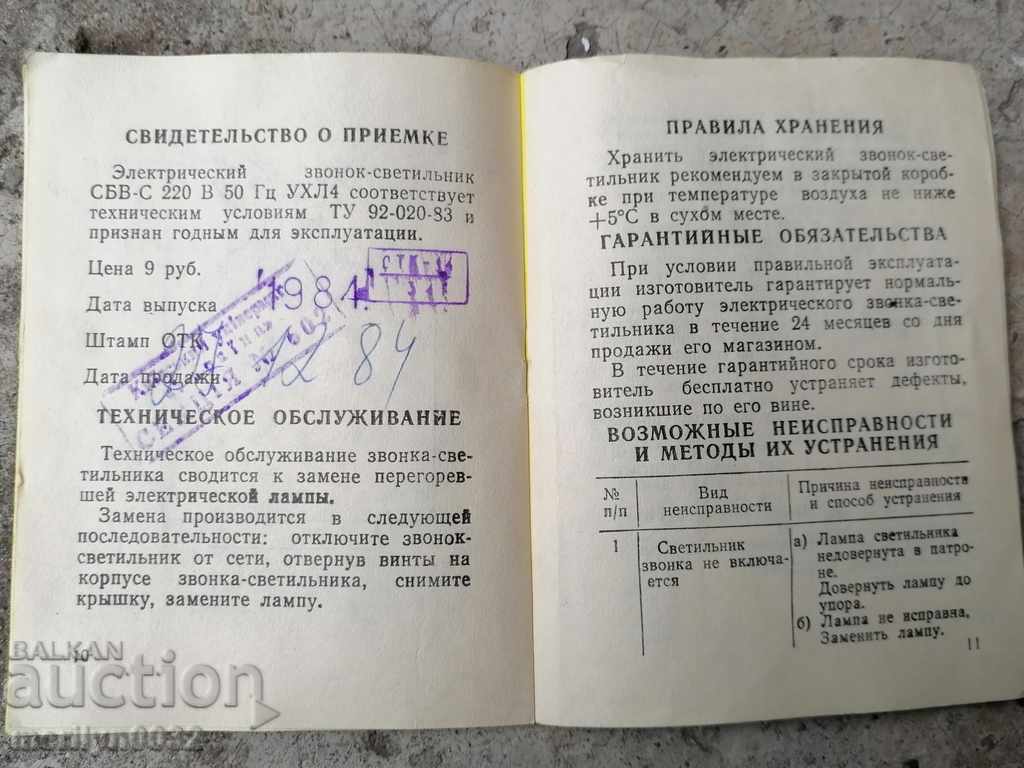 СВИДЕТЕЛЬСТВО О ПРИЕМКЕ
Электрический звонок-светильник
СБВ-С 220 В 50 Гц УХЛ4 соответствует
техническим условиям ТУ 92-020-83 и
признан годным для эксплуатации.
Цена 9 руб.
Дата выпуска 1984
Штамп ОТК
Дата продажи 12 84
ТЕХНИЧЕСКОЕ ОБСЛУЖИВАНИЕ
Техническое обслуживание звонка-све-
тильника сводится к замене перегорев-
шей электрической лампы.
Замена производится в следующей
последовательности: отключите звонок-
светильник от сети, отвернув винты на
корпусе звонка-светильника, снимите
крышку, замените лампу.
10
ПРАВИЛА ХРАНЕНИЯ
Хранить электрический звонок-све-
тильник рекомендуем в закрытой короб-
ке при температуре воздуха не ниже
+5°С в сухом месте.
ГАРАНТИЙНЫЕ ОБЯЗАТЕЛЬСТВА
При условии правильной эксплуата-
ции изготовитель гарантирует нормаль-
ную работу электрического звонка-све-
тильника в течение 24 месяцев со дня
продажи его магазином.
В течение гарантийного срока изгото-
витель бесплатно устраняет дефекты,
возникшие по его вине.
ВОЗМОЖНЫЕ НЕИСПРАВНОСТИ
И МЕТОДЫ ИХ УСТРАНЕНИЯ
№ п/п
Вид неисправности
Причина неисправности и способ устранения
1
Светильник
звонка не включа-
ется
а) Лампа светильника
недовернута в патро-
не.
Довернуть лампу до
упора.
б) Лампа не исправна,
Заменить лампу.
11
BALKAN
auction
merilyn0032